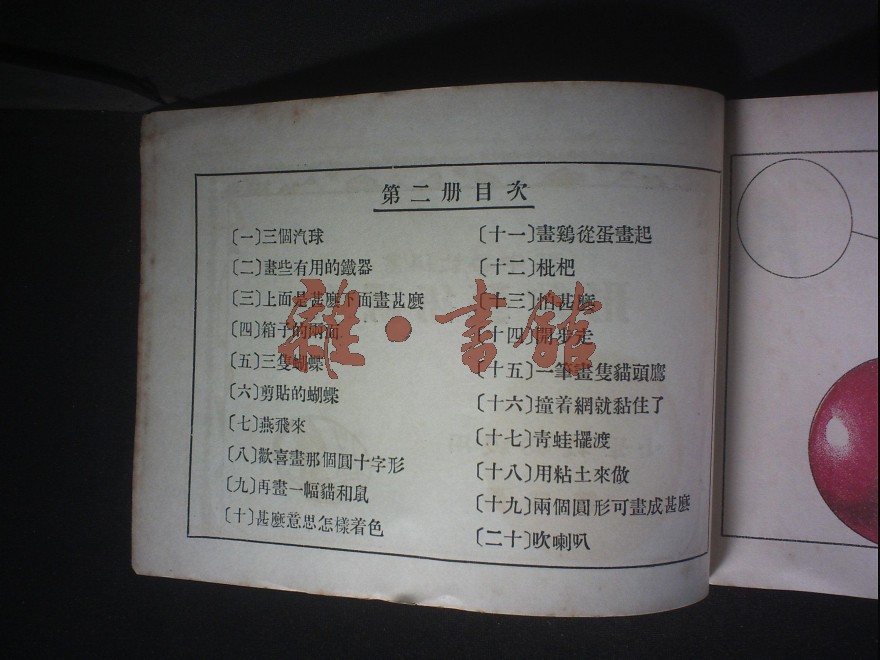 第二册目次
〔一〕三個汽球
〔二〕畫些有用的鐵器
〔三〕上面是甚麼下面畫甚麼
〔四〕箱子的兩面
〔五〕三隻蝴蝶
〔六〕剪貼的蝴蝶
〔七〕燕飛來
〔八〕歡喜畫那個圓十字形
〔九〕再畫一幅貓和鼠
〔十〕甚麼意思怎樣着色
〔十一〕畫鷄從蛋畫起
〔十二〕枇杷
〔十三〕怕甚麼
〔十四〕開步走
〔十五〕一筆畫隻貓頭鷹
〔十六〕撞着網就黏住了
〔十七〕青蛙擺渡
〔十八〕用粘土來做
〔十九〕兩個圓形可畫成甚麼
〔二十〕吹喇叭
雜·書館